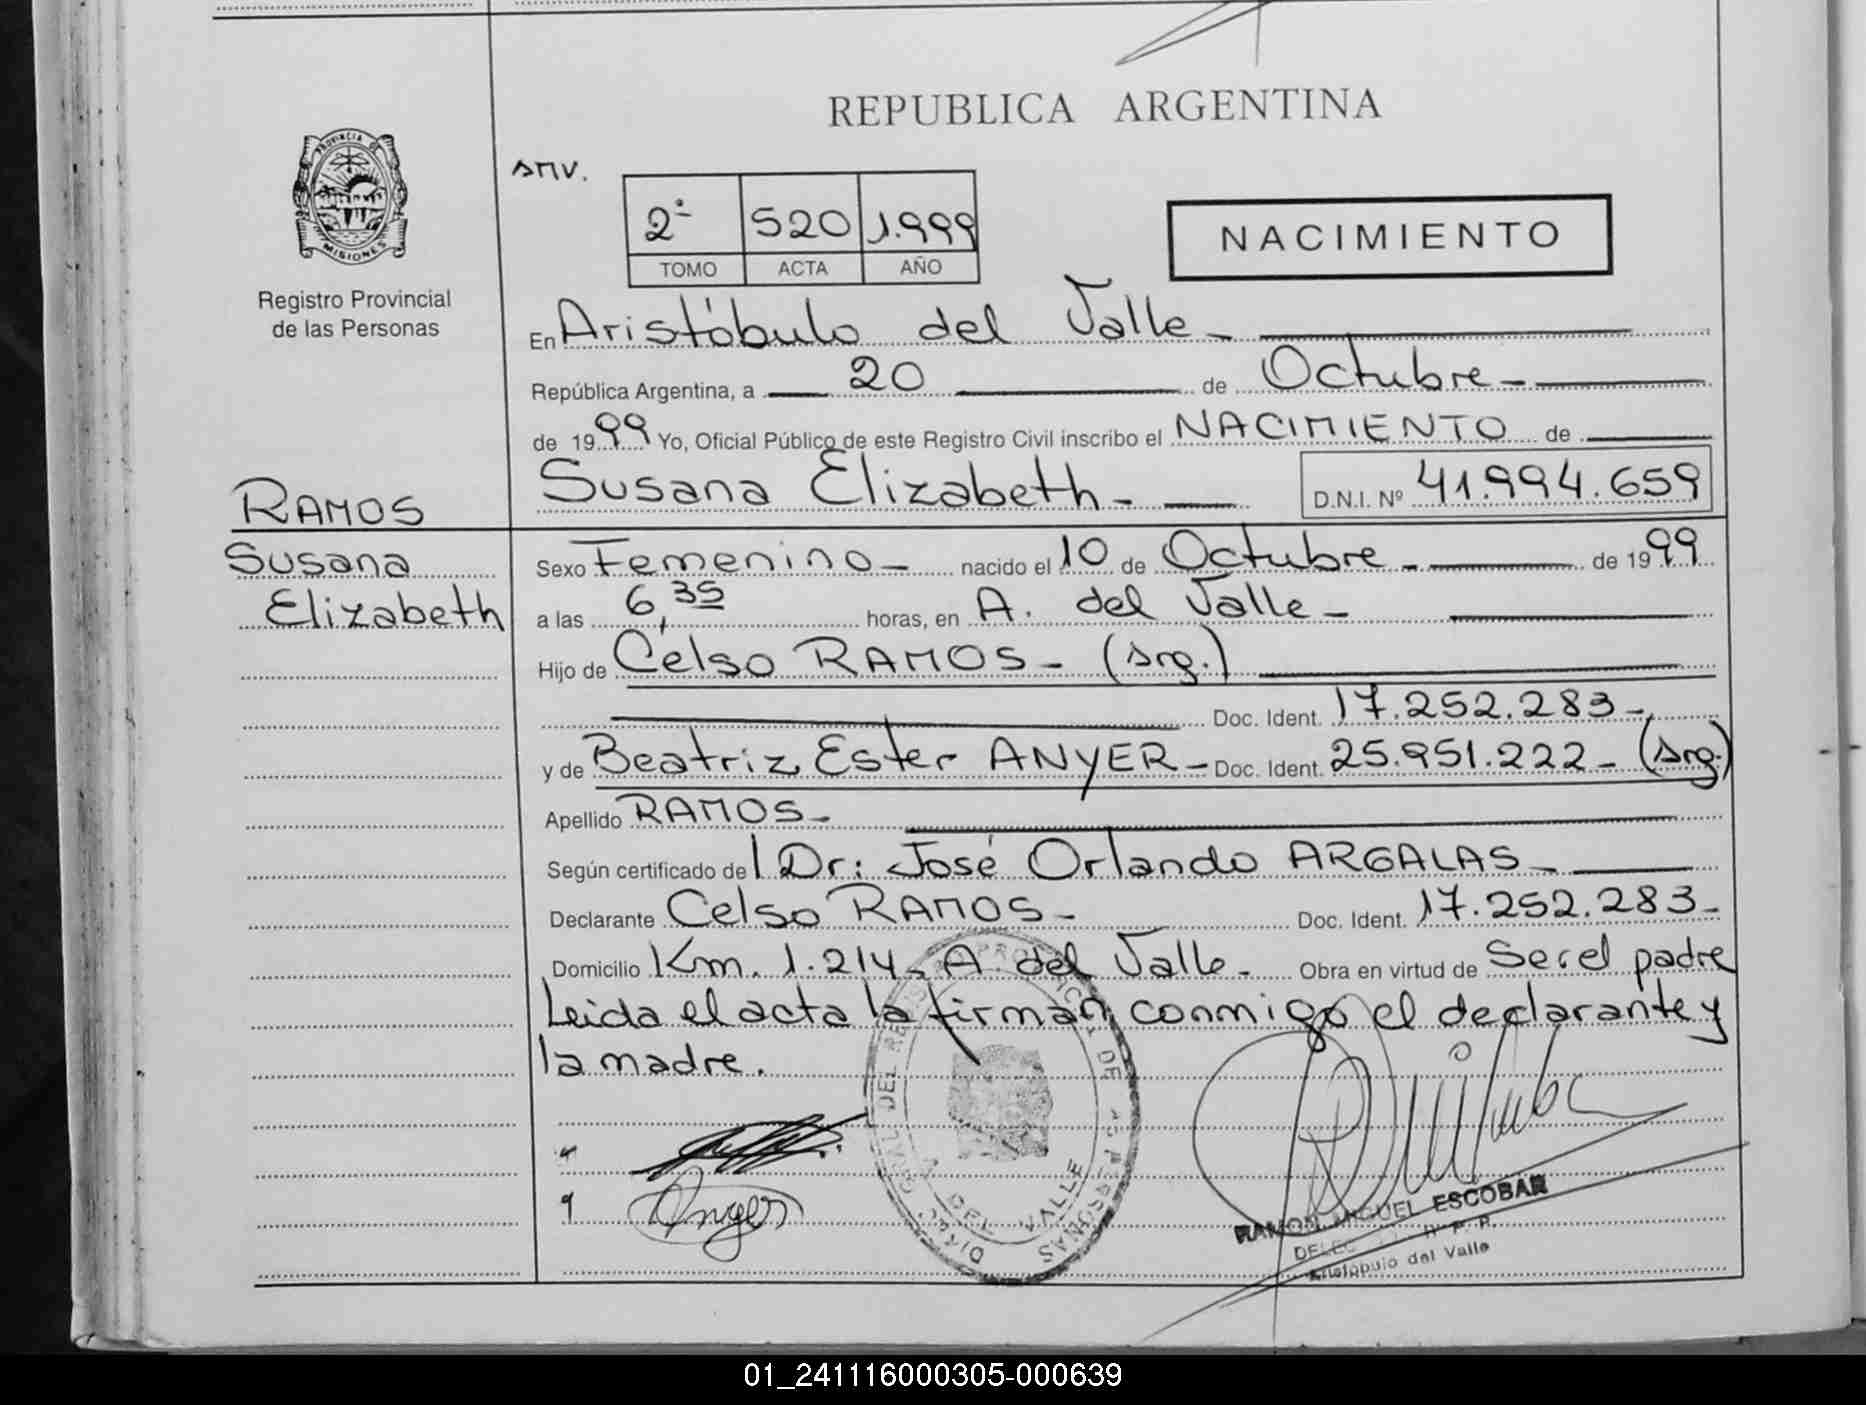 REPUBLICA ARGENTINA
PROVINCIA DE
MISIONES
Registro Provincial
de las Personas
smv.
2º 520 1.999
TOMO ACTA AÑO
NACIMIENTO
En Aristóbulo del Valle-
República Argentina, a 20 de Octubre-
de 1999 Yo, Oficial Público de este Registro Civil inscribo el NACIMIENTO de
RAMOS
Susana Elizabeth- D.N.I. Nº 41.994.659
Susana
Elizabeth
Sexo Femenino- nacido el 10 de Octubre- de 1999
a las 6,35 horas, en A. del Valle-
Hijo de Celso RAMOS- (Arg.)
Doc. Ident. 17.252.283-
y de Beatriz Ester ANYER- Doc. Ident. 25.951.222- (Arg.)
Apellido RAMOS-
Según certificado del Dr: José Orlando ARGALAS-
Declarante Celso RAMOS- Doc. Ident. 17.252.283-
Domicilio Km. 1.214, A. del Valle- Obra en virtud de Ser el padre
Leida el acta la firman conmigo el declarante y
la madre.
A DEL VALLE
RAMON MIGUEL ESCOBAR
Aristóbulo del Valle
01_241116000305-000639